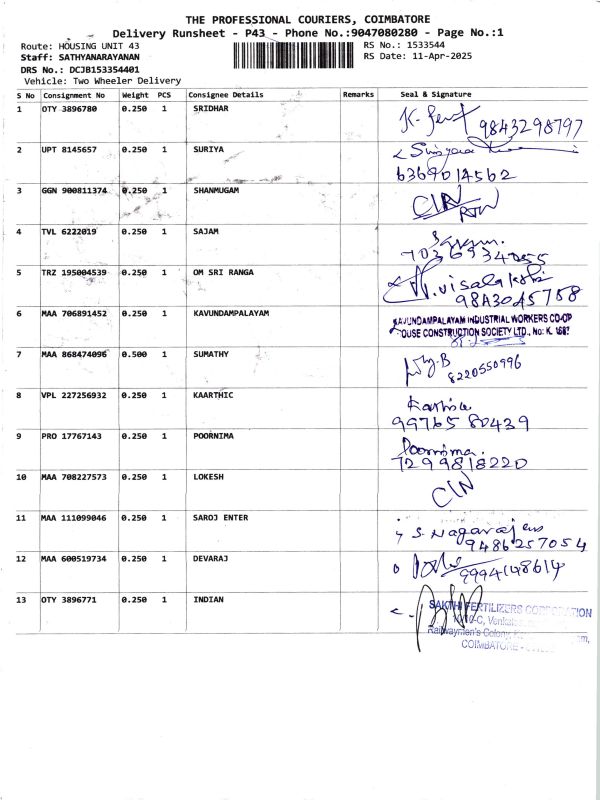 THE PROFESSIONAL COURIERS, COIMBATORE
Delivery Runsheet - P43 - Phone No.:9047080280 - Page No.:1
Route: HOUSING UNIT 43
RS No.: 1533544
Staff: SATHYANARAYANAN
RS Date: 11-Apr-2025
DRS No.: DCJB153354401
Vehicle: Two Wheeler Delivery
S No Consignment No Weight PCS Consignee Details Remarks Seal & Signature
1 OTY 3896780 0.250 1 SRIDHAR
9843298797
2 UPT 8145657 0.250 1 SURIYA
6369014562
3 GGN 900811374 0.250 1 SHANMUGAM
4 TVL 6222019 0.250 1 SAJAM
5 TRZ 195004539 0.250 1 OM SRI RANGA
9843045758
6 MAA 706891452 0.250 1 KAVUNDAMPALAYAM KAVUNDAMPALAYAM INDUSTRIAL WORKERS CO-OP
HOUSE CONSTRUCTION SOCIETY LTD., No: K. 1687
7 MAA 868474096 0.500 1 SUMATHY
8220550996
8 VPL 227256932 0.250 1 KAARTHIC
99765 80439
9 PRO 17767143 0.250 1 POORNIMA Poornima.
7299818220
10 MAA 708227573 0.250 1 LOKESH
11 MAA 111099046 0.250 1 SAROJ ENTER S. Nagarajan
9486257054
12 MAA 600519734 0.250 1 DEVARAJ 9994148614
13 OTY 3896771 0.250 1 INDIAN SAKTHI FERTILIZERS CORPORATION
Railwaymen's Colony,
COIMBATORE